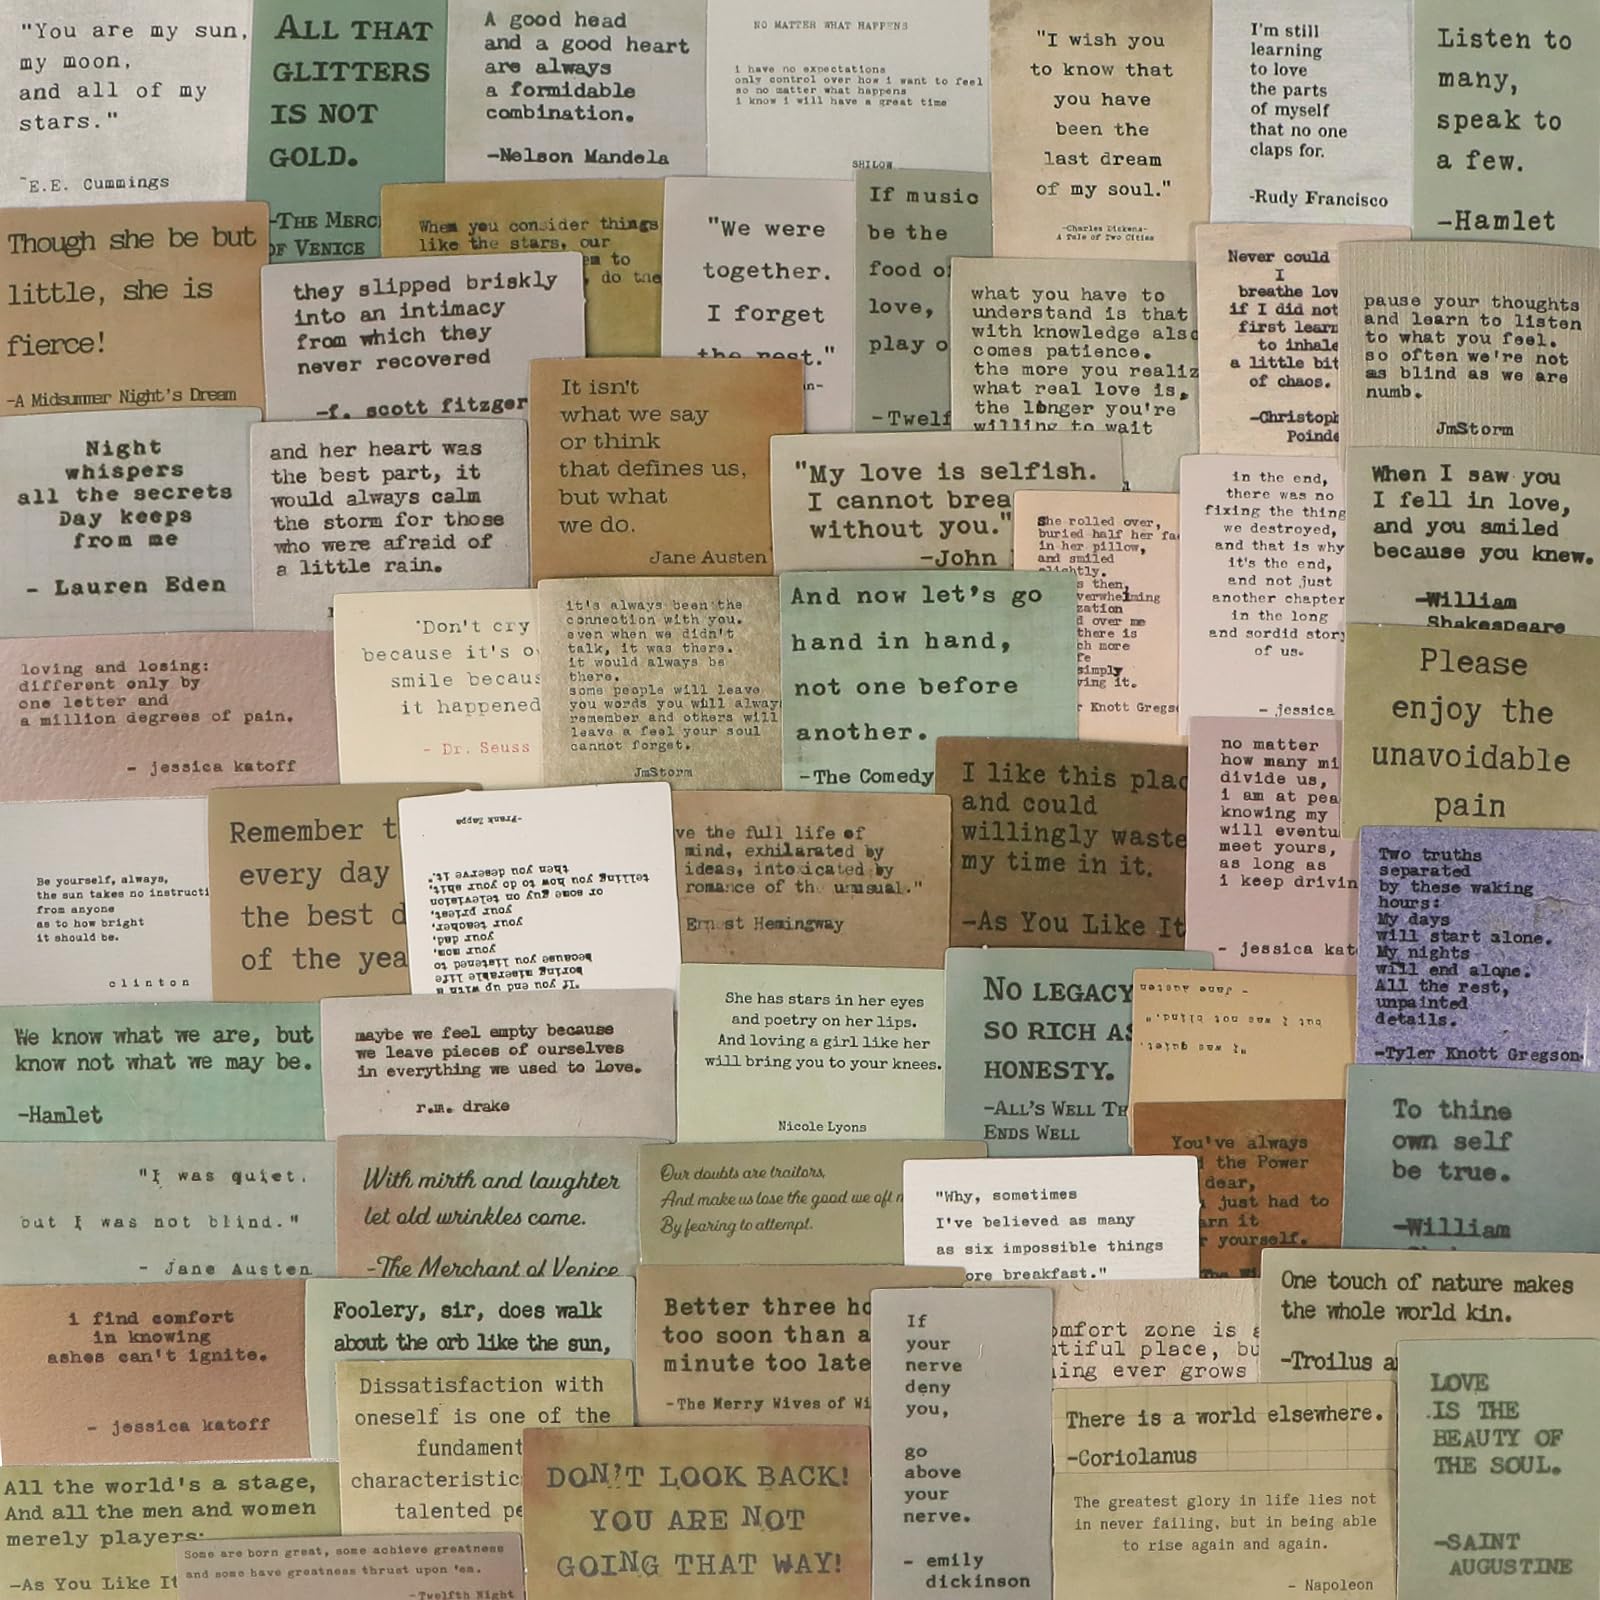 "You are my sun,
my moon,
and all of my
stars."
~E.E. Cummings
ALL THAT
GLITTERS
IS NOT
GOLD.
-THE MERC
OF VENICE
A good head
and a good heart
are always
a formidable
combination.
-Nelson Mandela
NO MATTER WHAT HAPPENS
i have no expectations
only control over how i want to feel
so no matter what happens
i know i will have a great time
SHILOW
"I wish you
to know that
you have
been the
last dream
of my soul."
-Charles Dickens-
A Tale of Two Cities
I'm still
learning
to love
the parts
of myself
that no one
claps for.
-Rudy Francisco
Listen to
many,
speak to
a few.
-Hamlet
Though she be but
little, she is
fierce!
-A Midsummer Night's Dream
When you consider things
like the stars, our
em to
, do the
they slipped briskly
into an intimacy
from which they
never recovered
-f. scott fitzger
"We were
together.
I forget
the rest."
If music
be the
food o
love,
play o
-Twelf
what you have to
understand is that
with knowledge also
comes patience.
the more you realiz
what real love is,
the longer you're
willing to wait
Never could
I
breathe lov
if I did not
first learn
to inhale
a little bit
of chaos.
-Christoph
Poinde
pause your thoughts
and learn to listen
to what you feel.
so often we're not
as blind as we are
numb.
JmStorm
Night
whispers
all the secrets
Day keeps
from me
- Lauren Eden
and her heart was
the best part, it
would always calm
the storm for those
who were afraid of
a little rain.
It isn't
what we say
or think
that defines us,
but what
we do.
Jane Austen
"My love is selfish.
I cannot brea
without you."
-John
She rolled over,
buried half her fa
in her pillow,
and smiled
slightly.
s then,
verwhelming
zation
d over me
there is
ch more
fe
simply
ving it.
r Knott Gregs
in the end,
there was no
fixing the thing
we destroyed,
and that is why
it's the end,
and not just
another chapter
in the long
and sordid story
of us.
- jessica
When I saw you
I fell in love,
and you smiled
because you knew.
-William
Shakespeare
loving and losing:
different only by
one letter and
a million degrees of pain.
- jessica katoff
"Don't cry
because it's o
smile becaus
it happened
- Dr. Seuss
it's always been the
connection with you.
even when we didn't
talk, it was there.
it would always be
there.
some people will leave
you words you will alway
remember and others will
leave a feel your soul
cannot forget.
JmStorm
And now let's go
hand in hand,
not one before
another.
-The Comedy
Please
enjoy the
unavoidable
pain
I like this plac
and could
willingly waste
my time in it.
-As You Like It
no matter
how many mi
divide us,
i am at pea
knowing my
will eventu
meet yours,
as long as
i keep drivin
- jessica kat
Be yourself, always,
the sun takes no instructi
from anyone
as to how bright
it should be.
clinton
Remember t
every day
the best d
of the yea
"If you end up with a
boring miserable life
because you listened to
your mom,
your dad,
your teacher,
your priest,
or some guy on television
telling you how to do your shit,
then you deserve it."
-Frank Zappa
ve the full life of
mind, exhilarated by
ideas, intoxicated by
romance of the unusual."
Ernest Hemingway
Two truths
separated
by these waking
hours:
My days
will start alone.
My nights
will end alone.
All the rest,
unpainted
details.
-Tyler Knott Gregson-
We know what we are, but
know not what we may be.
-Hamlet
maybe we feel empty because
we leave pieces of ourselves
in everything we used to love.
r.m. drake
She has stars in her eyes
and poetry on her lips.
And loving a girl like her
will bring you to your knees.
Nicole Lyons
NO LEGACY
SO RICH AS
HONESTY.
-ALL'S WELL TH
ENDS WELL
"I was quiet,
but I was not blind."
- Jane Austen
To thine
own self
be true.
-William
"I was quiet,
but I was not blind."
- Jane Austen
With mirth and laughter
let old wrinkles come.
-The Merchant of Venice
Our doubts are traitors,
And make us lose the good we oft
By fearing to attempt.
"Why, sometimes
I've believed as many
as six impossible things
ore breakfast."
You've always
the Power
dear,
just had to
arn it
r yourself.
The Wi
i find comfort
in knowing
ashes can't ignite.
- jessica katoff
Foolery, sir, does walk
about the orb like the sun,
Better three ho
too soon than a
minute too late
-The Merry Wives of Wi
If
your
nerve
deny
you,
go
above
your
nerve.
- emily
dickinson
omfort zone is a
utiful place, bu
hing ever grows
One touch of nature makes
the whole world kin.
-Troilus a
Dissatisfaction with
oneself is one of the
fundament
characteristic
talented pe
There is a world elsewhere.
-Coriolanus
LOVE
IS THE
BEAUTY OF
THE SOUL.
-SAINT
AUGUSTINE
All the world's a stage,
And all the men and women
merely players:
-As You Like It
Some are born great, some achieve greatness
and some have greatness thrust upon 'em.
-Twelfth Night
DON'T LOOK BACK!
YOU ARE NOT
GOING THAT WAY!
The greatest glory in life lies not
in never failing, but in being able
to rise again and again.
- Napoleon